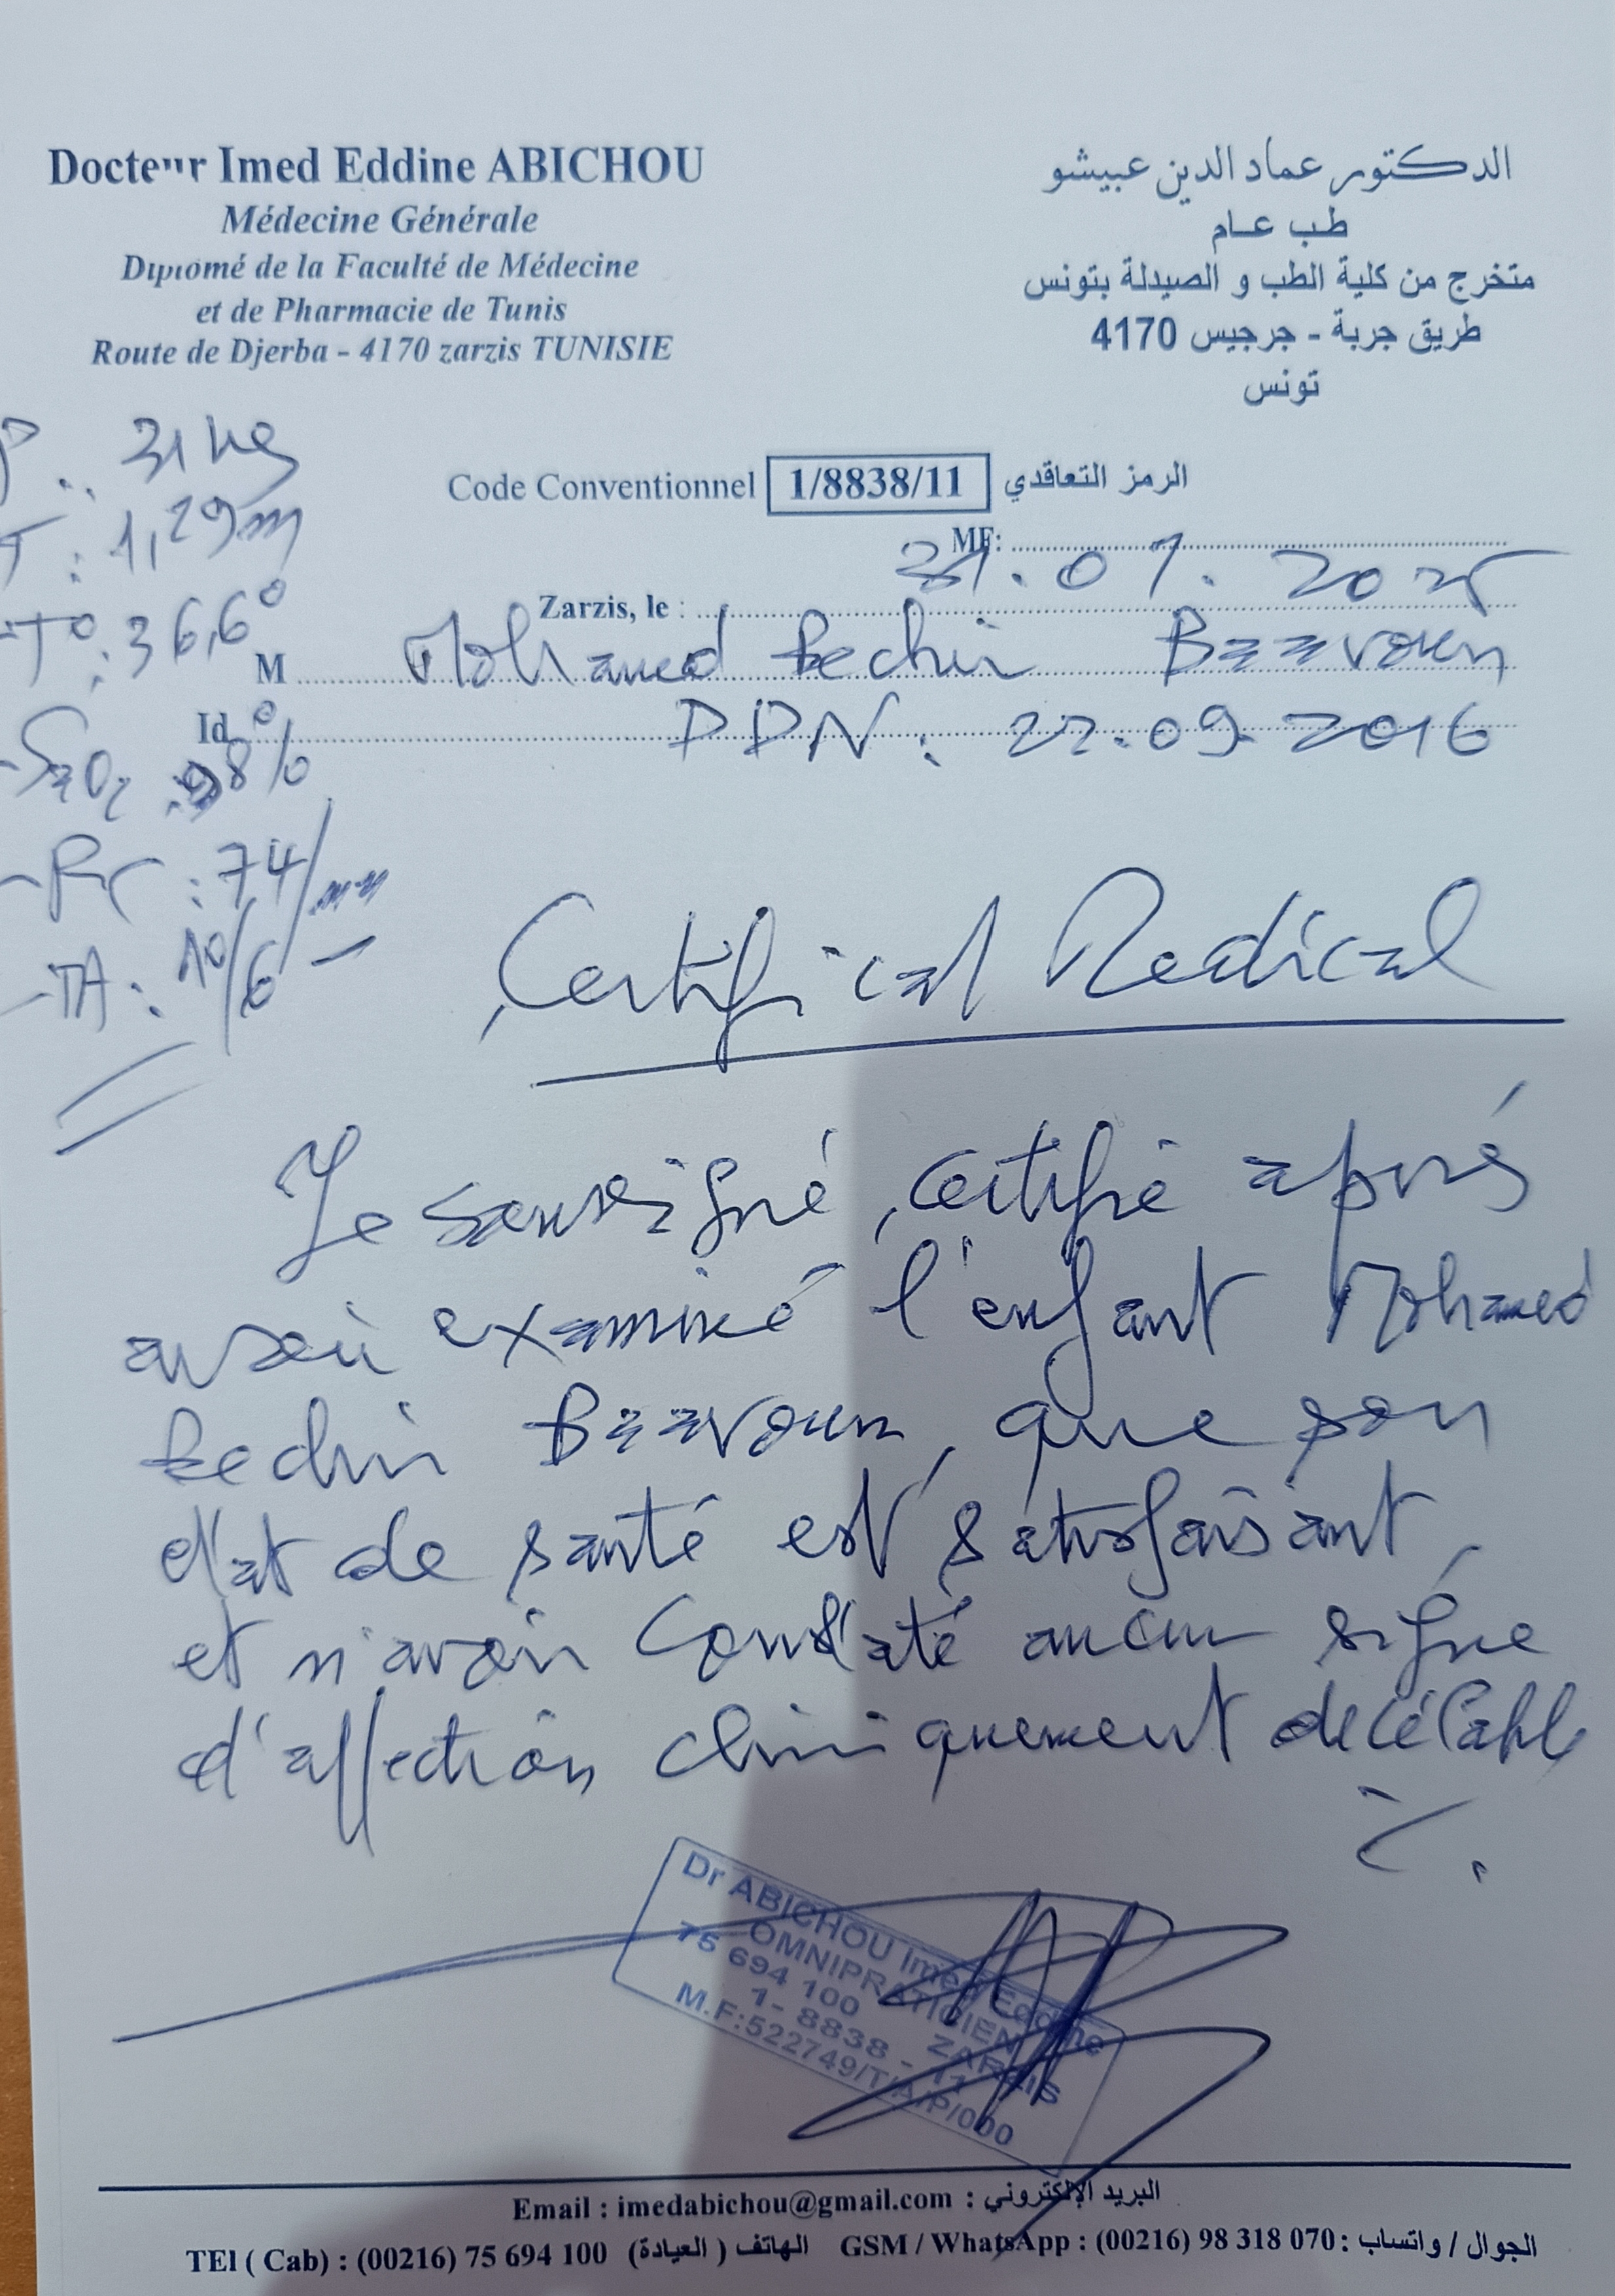 Docteur Imed Eddine ABICHOU
Médecine Générale
Diplomé de la Faculté de Médecine
et de Pharmacie de Tunis
Route de Djerba - 4170 zarzis TUNISIE
الدكتور عماد الدين عبيشو
طب عام
متخرج من كلية الطب و الصيدلة بتونس
طريق جربة - جرجيس 4170
تونس
Code Conventionnel 1/8838/11 الرمز التعاقدي
MF:
Zarzis, le : 31.07.2025
M Mohamed Bechir
Id DDN: 22.09.2016
P: 31 kg
T: 1,29m
-T°: 36,6°
-SaO2: 98%
-Fc: 74/mn
-TA: 10/6
Certificat Medical
Je soussigné, certifie après
avoir examiné l'enfant Mohamed
Bechir que son
état de santé est satisfaisant,
et n'avoir constaté aucun signe
d'affection cliniquement décélable
Dr ABICHOU Imed Eddine
OMNIPRATICIEN
75 694 100 ZARZIS
1- 8838 - 11
M.F:522749/T/A/P/000
Email : imedabichou@gmail.com : البريد الإلكتروني
TEl ( Cab) : (00216) 75 694 100 الهاتف ( العيادة) GSM / WhatsApp : (00216) 98 318 070 : الجوال / واتساب